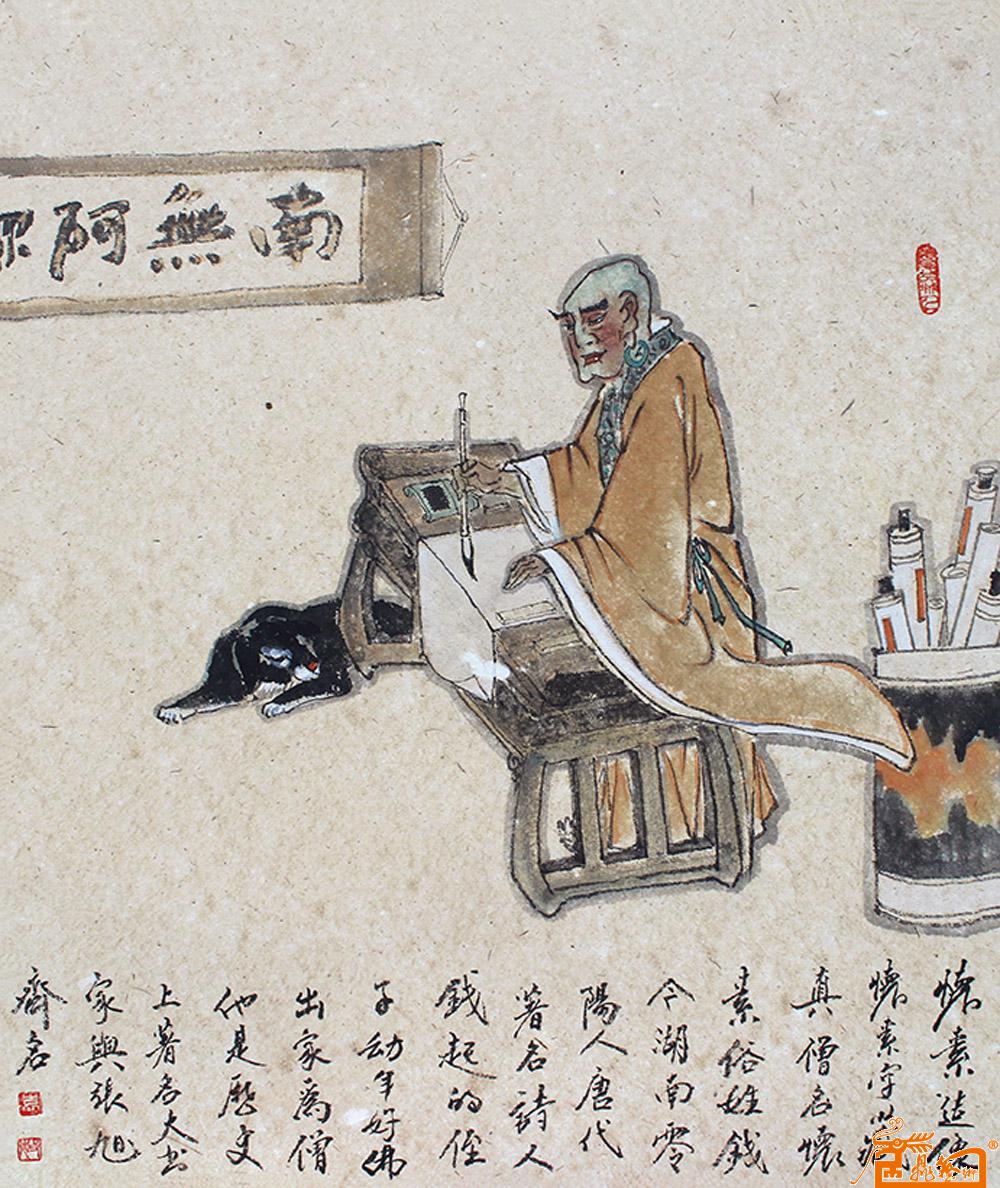 南無阿
懷素造像
懷素字
真僧名懷
素俗姓錢
今湖南零
陽人唐代
著名詩人
錢起的侄
子幼年好佛
出家爲僧
他是歷史
上著名大书
家與張旭
齊名